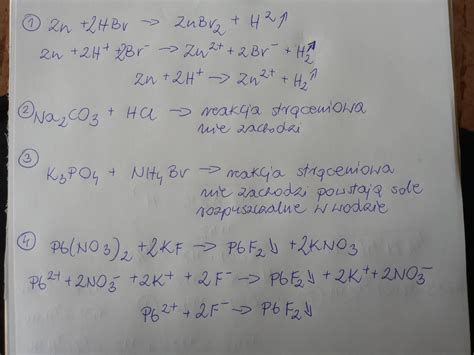 ① Zn + 2HBr → ZnBr₂ + H²↑
Zn + 2H⁺ + 2Br⁻ → Zn²⁺ + 2Br⁻ + H₂↑
Zn + 2H⁺ → Zn²⁺ + H₂↑
② Na₂CO₃ + HCl → reakcja strąceniowa
nie zachodzi
③
K₃PO₄ + NH₄Br → reakcja strąceniowa
nie zachodzi powstają sole
rozpuszczalne w wodzie
④ Pb(NO₃)₂ + 2KF → PbF₂↓ + 2KNO₃
Pb²⁺ + 2NO₃⁻ + 2K⁺ + 2F⁻ → PbF₂↓ + 2K⁺ + 2NO₃⁻
Pb²⁺ + 2F⁻ → PbF₂↓